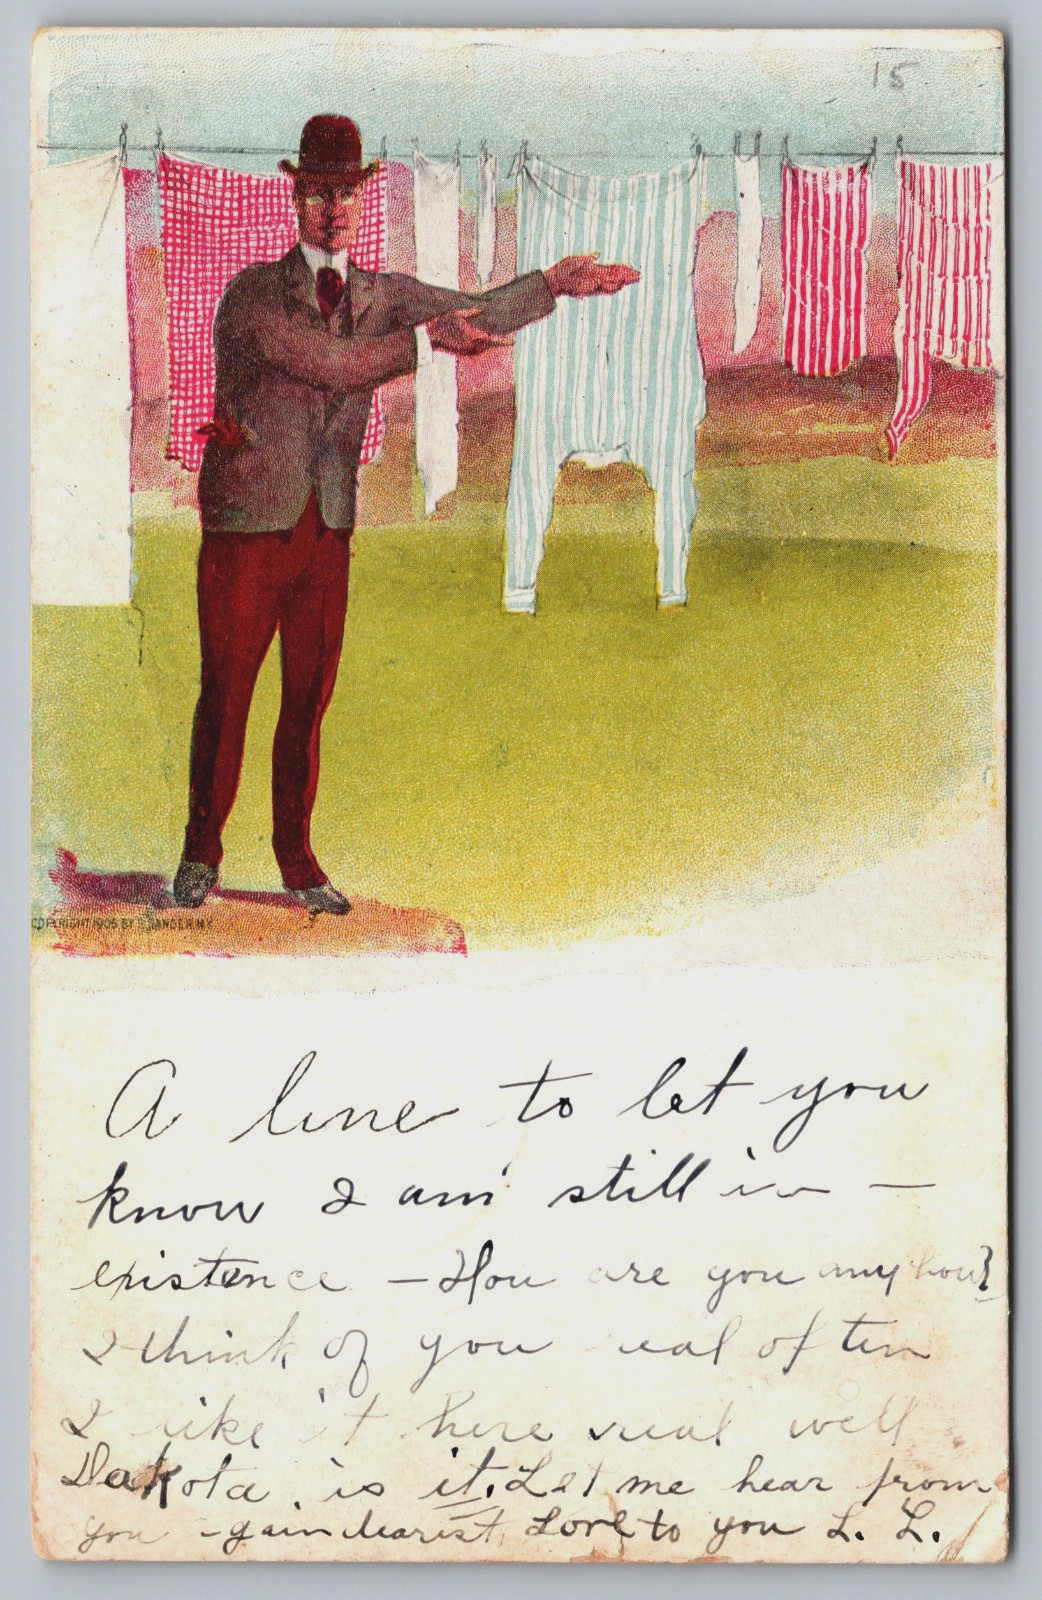 15
COPYRIGHT 1905 BY SANDER N.Y.
A line to let you
know I am still in —
existence — How are you anyhow?
I think of you real often
I like it here real well
Dakota. is it. Let me hear from
you again dearest, Love to you L. L.